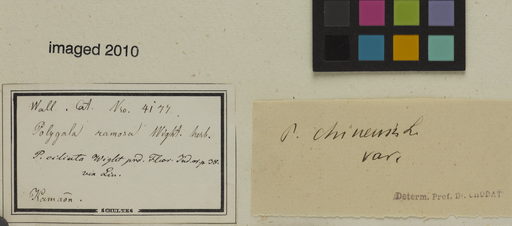 imaged 2010
Wall. Cat. Nro. 4177.
Polygala ramosa Wight. herb.
P. ciliata Wight prd. Flor. Ind. p. 38.
non Lin.
Kamaon.
SCHULZES
P. chinensis L.
var.
Determ. Prof. Dr. CHODAT